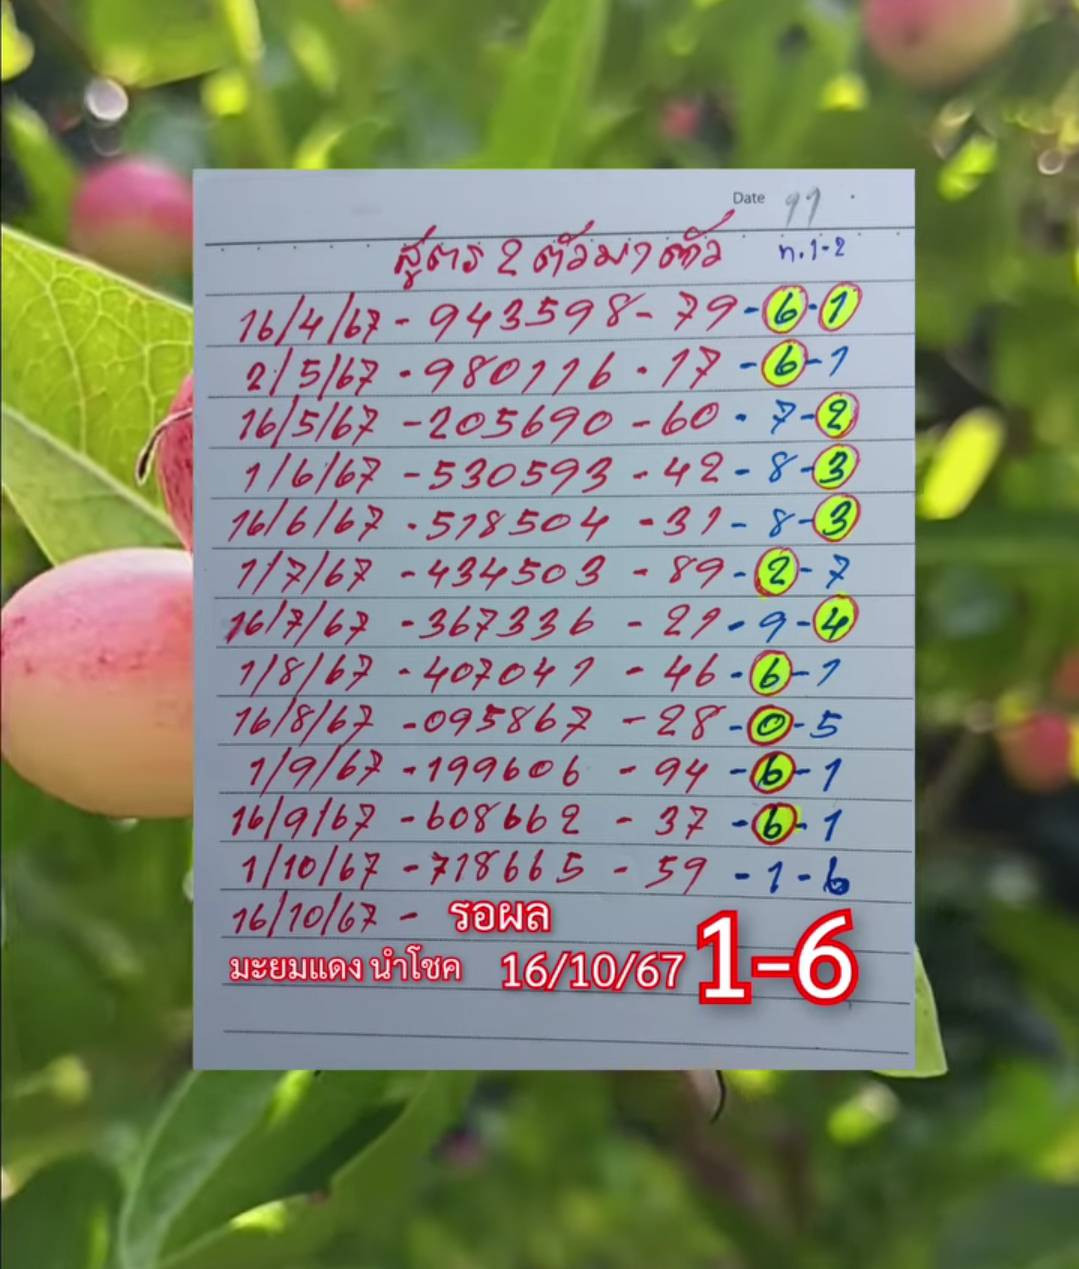 Date 11
สูตร 2 ตัวมา ตัว ท.1-2
16/4/67 - 943598 - 79 - 6 - 1
2/5/67 - 980116 - 17 - 6 - 1
16/5/67 - 205690 - 60 - 7 - 2
1/6/67 - 530593 - 42 - 8 - 3
16/6/67 - 518504 - 31 - 8 - 3
1/7/67 - 434503 - 89 - 2 - 7
16/7/67 - 367336 - 21 - 9 - 4
1/8/67 - 407041 - 46 - 6 - 1
16/8/67 - 095867 - 28 - 0 - 5
1/9/67 - 199606 - 94 - 6 - 1
16/9/67 - 608662 - 37 - 6 - 1
1/10/67 - 718665 - 59 - 1 - 6
16/10/67 - รอผล
มะยมแดง นำโชค 16/10/67 1-6